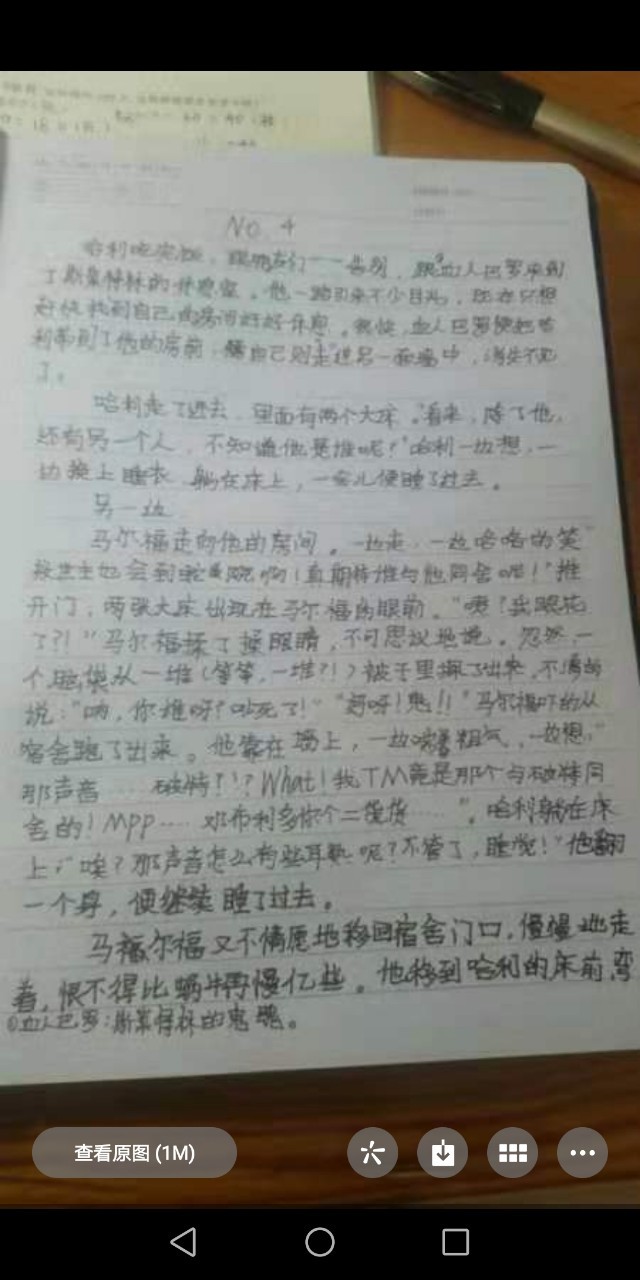 No. 4
哈利吃完饭，跟朋友们一一告别，跟①血人巴罗来到
了斯莱特林的休息室。他一路引来不少目光，现在只想
赶快找到自己的房间好好休息。很快，血人巴罗便把哈
利带到了他的房前，随自己则走进另一面墙中，消失不见
了。
哈利走了进去，里面有两个大床。"看来，除了他，
还有另一个人，不知道他是谁呢？"哈利一边想，一
边换上睡衣，躺在床上，一会儿便睡了过去。
另一边
马尔福走向他的房间。一边走，一边哈哈的笑"
救世主也会到蛇院啊！真期待谁与他同舍呢！"推
开门，两张大床出现在马尔福的眼前。"咦？我眼花
了？！"马尔福揉了揉眼睛，不可思议地说。忽然，一
个脑袋从一堆（等等，一堆？！）被子里探了出来，不满的
说："呐，你谁呀？吵死了！""妈呀！鬼！！"马尔福吓的从
宿舍跑了出来。他靠在墙上，一边喘着粗气，一边想："
那声音……破特？！？What！我TM竟是那个与破特同
舍的！MPP……邓布利多你个二货货……"。哈利躺在床
上："唉？那声音怎么有些耳熟呢？不管了，睡觉！"他翻
一个身，便继续睡了过去。
马尔福又不情愿地移回宿舍门口，慢慢地走
着，恨不得比蜗牛再慢亿些。他移到哈利的床前，弯
①血人巴罗：斯莱特林的鬼魂。
查看原图 (1M)